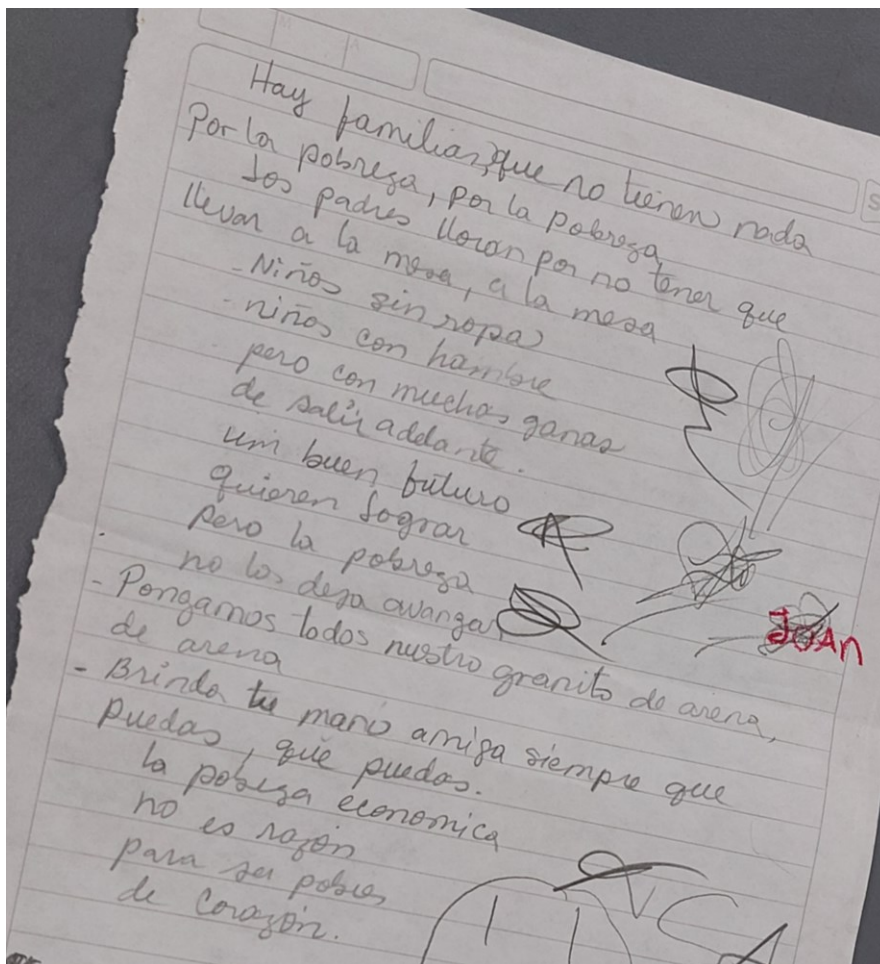 Hay familias, que no tienen nada
Por la pobreza, por la pobreza
Los padres lloran por no tener que
llevar a la mesa, a la mesa
- Niños sin ropa
- niños con hambre
pero con muchas ganas
de salir adelante.
un buen futuro
quieren lograr
pero la pobreza
no los deja avanzar
- Pongamos todos nuestro granito de arena,
de arena
- Brinda tu mano amiga siempre que
puedas, que puedas.
la pobreza economica
no es razón
para ser pobres
de corazón.
JOAN